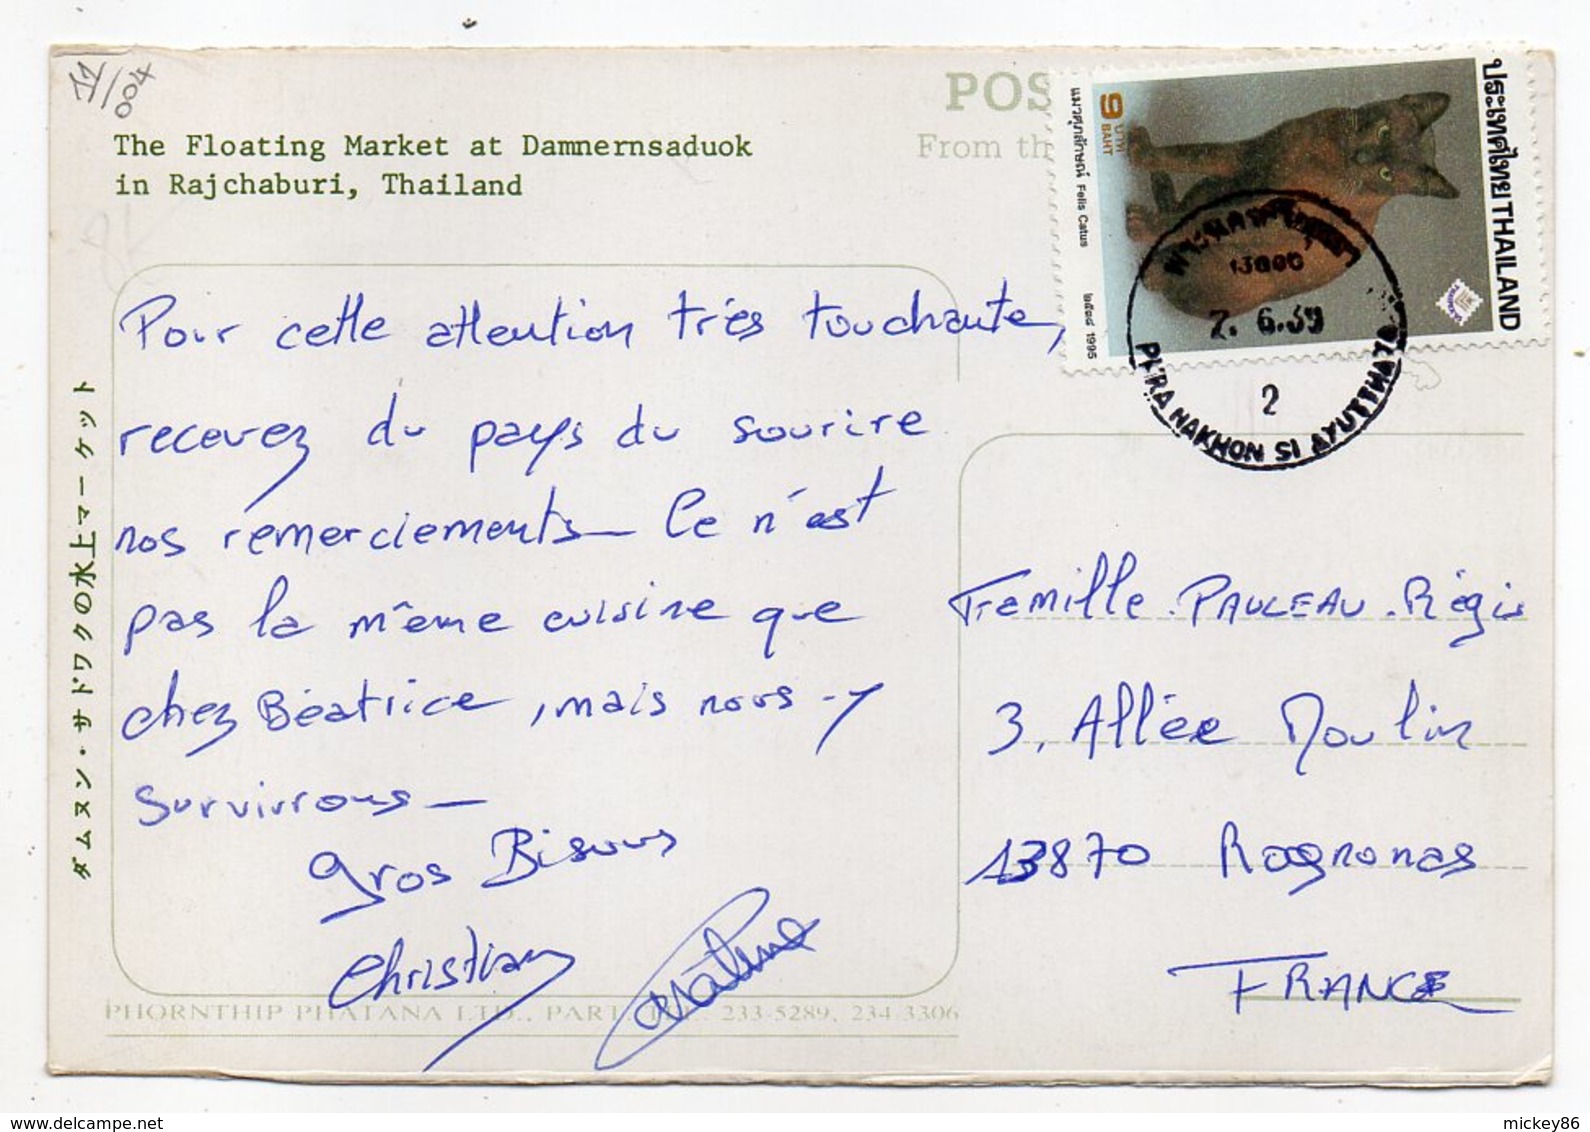 11/004
The Floating Market at Damnernsaduok
in Rajchaburi, Thailand
POS
From th
ประเทศไทย THAILAND
9 บาท BAHT
แมวศุภลักษณ์ Felis Catus ๒๕๓๘ 1995
13000
2. 6.39
2
PHRA NAKHON SI AYUTTHAYA
ダムヌン・サドワクの水上マーケット
Pour cette attention très touchante,
recevez du pays du sourire
nos remerciements_ Ce n'est
pas la même cuisine que
chez Béatrice, mais nous-y
survivrons_
gros Bisous
Christian
Famille PAULEAU Régis
3, Allée Moulin
13870 Rognonas
FRANCE
PHORNTHIP PHATANA LTD., PART. TEL. 233-5289, 234-3306
mickey86